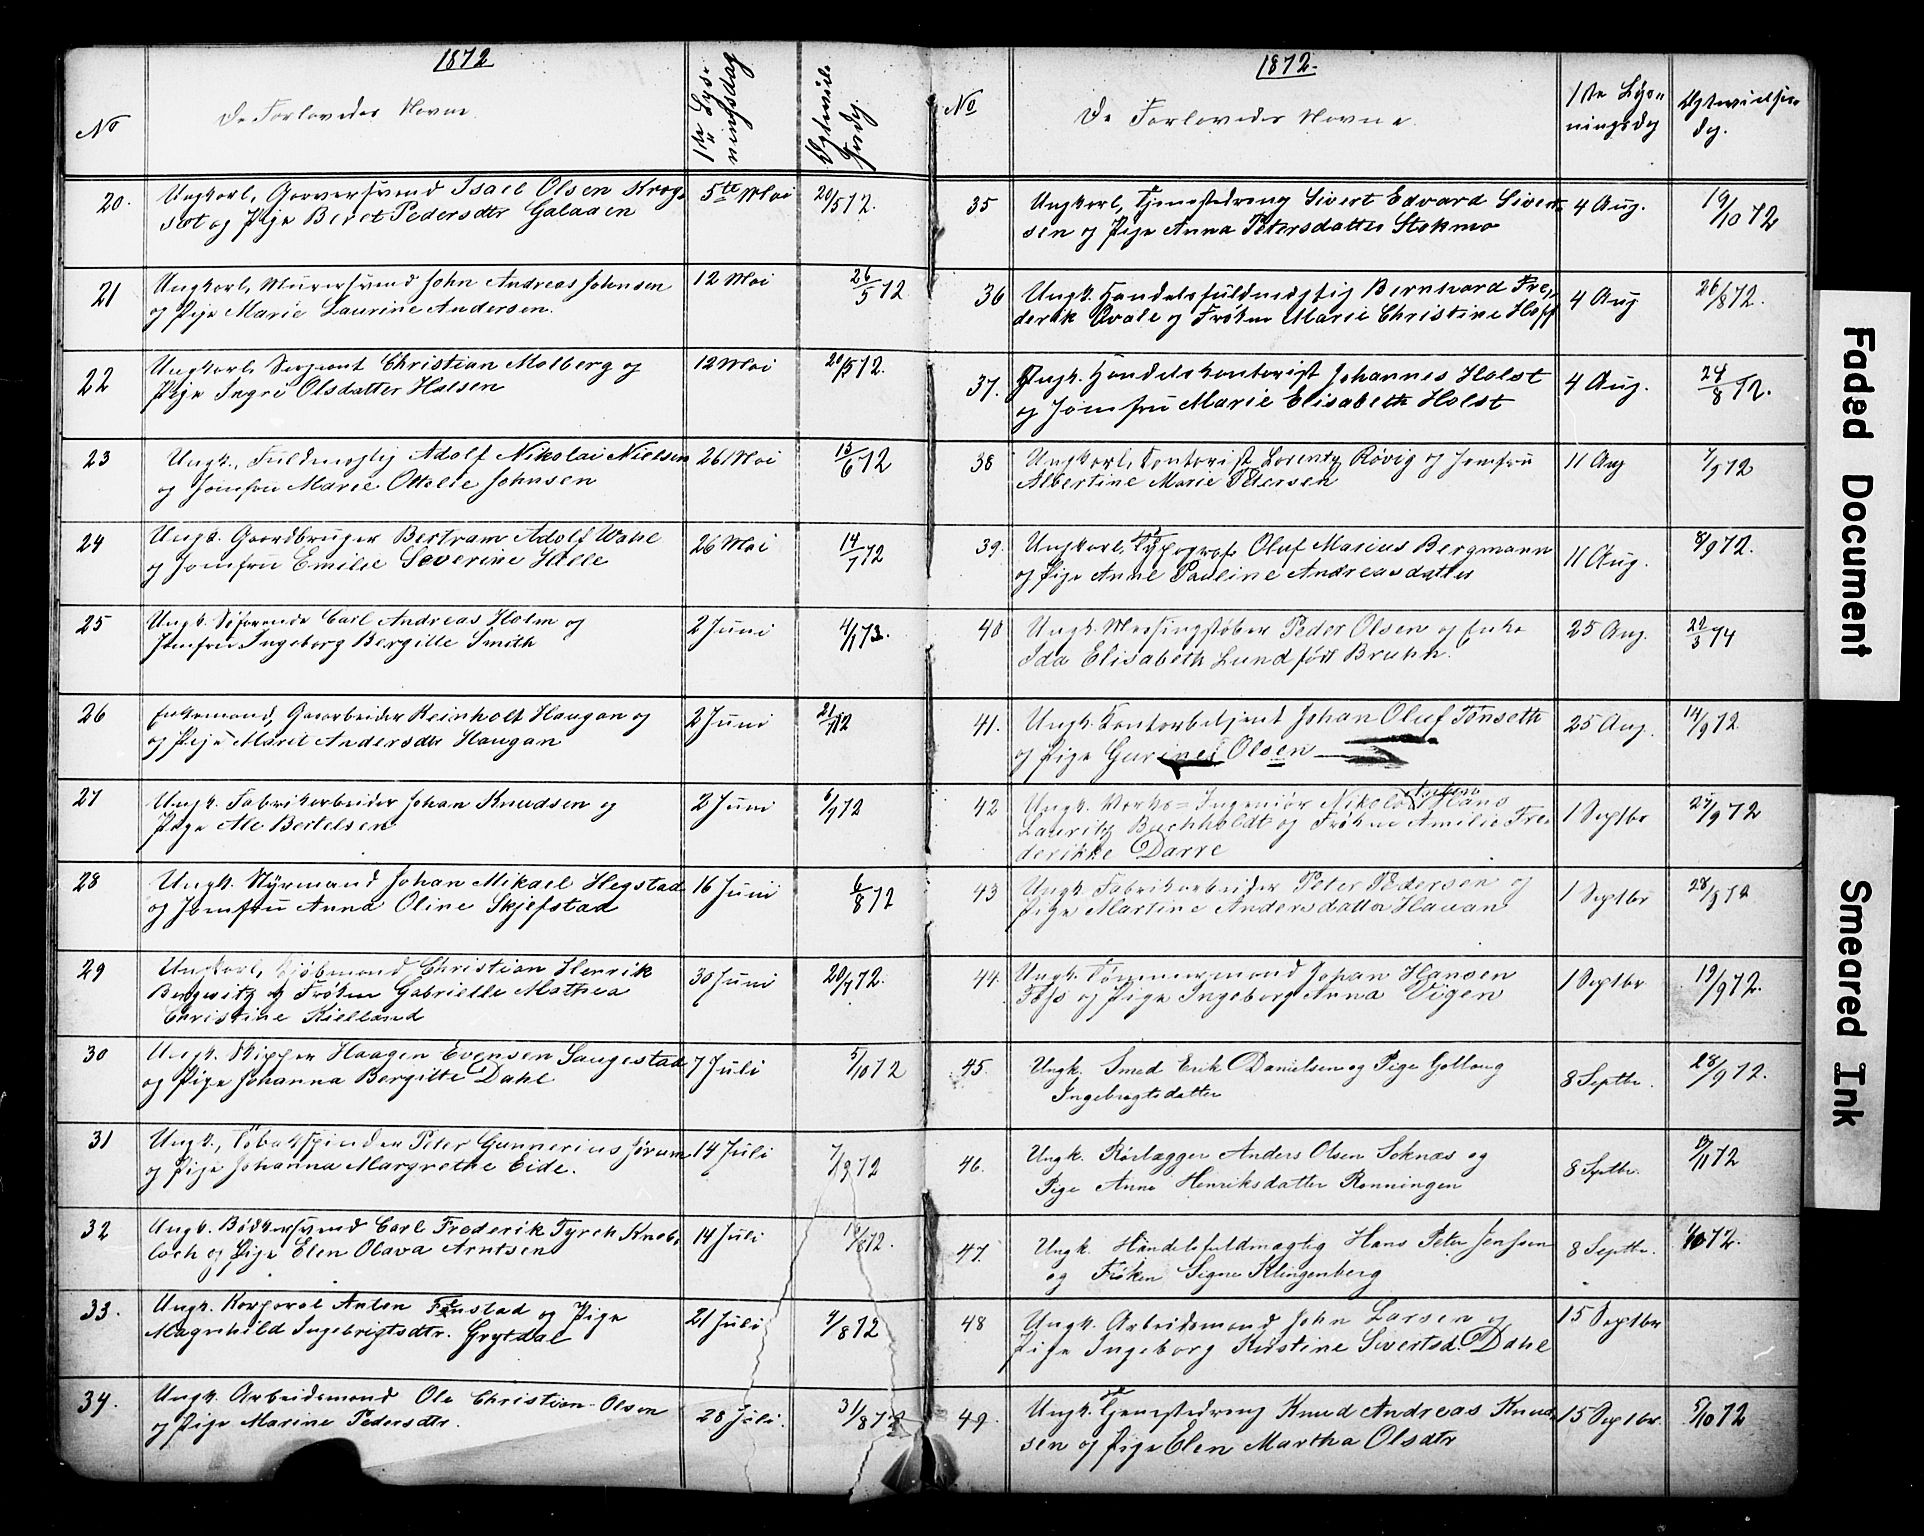 1872
No
De Forlovedes Navne
1ste Lys-
ningsdag
Vgtevielses
dag.
20. Ungkarl, Garversvend Isael Olsen Krog- 5te Mai 20/5 72.
stot og Pige Beret Pedersdtr Galaaen
21 Ungkarl, Murersvend John Andreas Johnsen 12 Mai 26/5 72
og Pige Marie Laurine Andersen.
22 Ungkarl, Sergeant Christian Molberg og 12 Mai 20/5 72.
Pige Ingri Olsdatter Halsen
23 Ungk., Fuldmægtig Adolf Nikolai Nielsen 26 Mai 15/6 72
og Jomfru Marie Ottelie Johnsen
24 Ungk. Gaardbruger Bertram Adolf Wahl 26 Mai 14/7 72
og Jomfru Emilie Severine Halle
25 Ungk. Søfarende Carl Andreas Holm og 2 Juni 4/1 73.
Jomfru Ingeborg Bergitte Smith
26 Enkemand, Gaarbeider Reinholt Haugan og 2 Juni 21/7 72
og Pige Marit Andersdtr Haugan
27 Ungk. Fabrikarbeider Johan Knudsen og 2 Juni 6/7 72
Pige Ale Bertelsen
28 Ungk. Styrmand Johan Mikael Hegstad 16 Juni 6/8 72
og Jomfru Anna Oline Skjefstad
29 Ungkarl, Kjøbmand Christian Henrik 30 Juni 20/7 72.
Bergwitz og Frøken Gabrielle Mathea
Christine Kielland
30 Ungk. Skipper Haagen Evensen Saugestad 7 Juli 5/10 72
og Pige Johanna Bergitte Dahl
31 Ungk., Tobakspinder Peter Gunnerius Jørum 14 Juli 7/9 72
og Pige Johanna Margrethe Eide.
32 Ungk. Bødkersvend Carl Frederik Tyrch Knob- 14 Juli /8 72.
loch og Pige Elen Olava Arntsen
33. Ungk. Korporal Anton Fenstad og Pige 21 Juli 4/8 72
Magnhild Ingebrigtsdtr. Grytdal
34. Ungk. Arbeidsmand Ole Christian Olsen 28 Juli. 31/8 72
og Pige Marine Pedersdtr.
1872.
No
De Forlovedes Navne.
1ste Lys-
ningsdag
Vgtevielses-
dag.
35 Ungkarl, Tjenestedreng Sivert Edvard Siver- 4 Aug. 19/10 72
sen og Pige Anna Petersdatter Stokmo
36 Ungk. Handelsfuldmægtig Bernhard Fre- 4 Aug 26/8 72.
derik Qvale og Frøken Marie Christine Hoff
37. Ungk. Handelskontorist Johannes Holst 4 Aug. 24/8 72.
og Jomfru Marie Elisabeth Holst
38 Ungkarl, Kontorist Lorentz Røvig og Jomfru 11 Aug 7/9 72
Albertine Marie Petersen
39. Ungkarl, Typograf Oluf Marius Bergmann 11 Aug. 8/9 72.
og Pige Anne Pauline Andreasdatter
40 Ungk. Messingstøber Peder Olsen og Enke 25 Aug. 22/3 74
Ida Elisabeth Lund født Bruhn.
41. Ungk. Kontorbetjent Johan Oluf Tønseth 25 Aug. 14/9 72.
og Pige Gurine Olsen
42 Ungk. Værks-Ingeniør Nikolai Hans 1 Septbr 27/9 72
Lauritz Buchholdt og Frøken Amilie Fre-
derikke Darre
43 Ungk. Fabrikarbeider Peter Pedersen og 1 Septbr 28/9 72
Pige Martine Andersdatter Havan
44. Ungk. Tømmermand Johan Hansen 1 Septbr 19/9 72.
Fossø og Pige Ingeborg Anna Vigen
45. Ungk. Smed Erik Danielsen og Pige Gollaug 8 Septbr. 28/9 72.
Ingebrigtsdatter
46. Ungk. Rørlægger Anders Olsen Soknæs og 8 Septbr. 13/11 72
Pige Anne Henriksdatter Rønningen
47. Ungk. Handelsfuldmægtig Hans Peter Jenssen 8 Septbr. 6/10 72.
og Frøken Signe Klingenberg
48 Ungk. Arbeidsmand John Larsen og 15 Septbr
Pige Ingeborg Kristine Sivertsd. Dahl
49. Ungk. Tjenestedreng Knud Andreas Knud- 15 Septbr. 5/10 72
sen og Pige Elen Martha Olsdtr
Faded Document
Smeared Ink